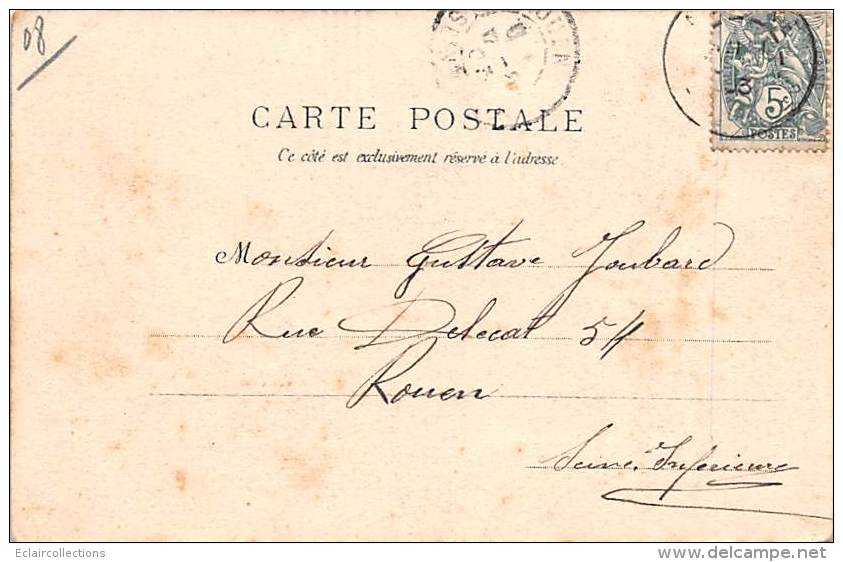 08
5c
POSTES
CARTE POSTALE
Ce côté est exclusivement réservé à l'adresse
Monsieur Gustave Joubard
Rue Delecat 54
Rouen
Seine Inférieure
Eclaircollections
http://www.delcampe.net